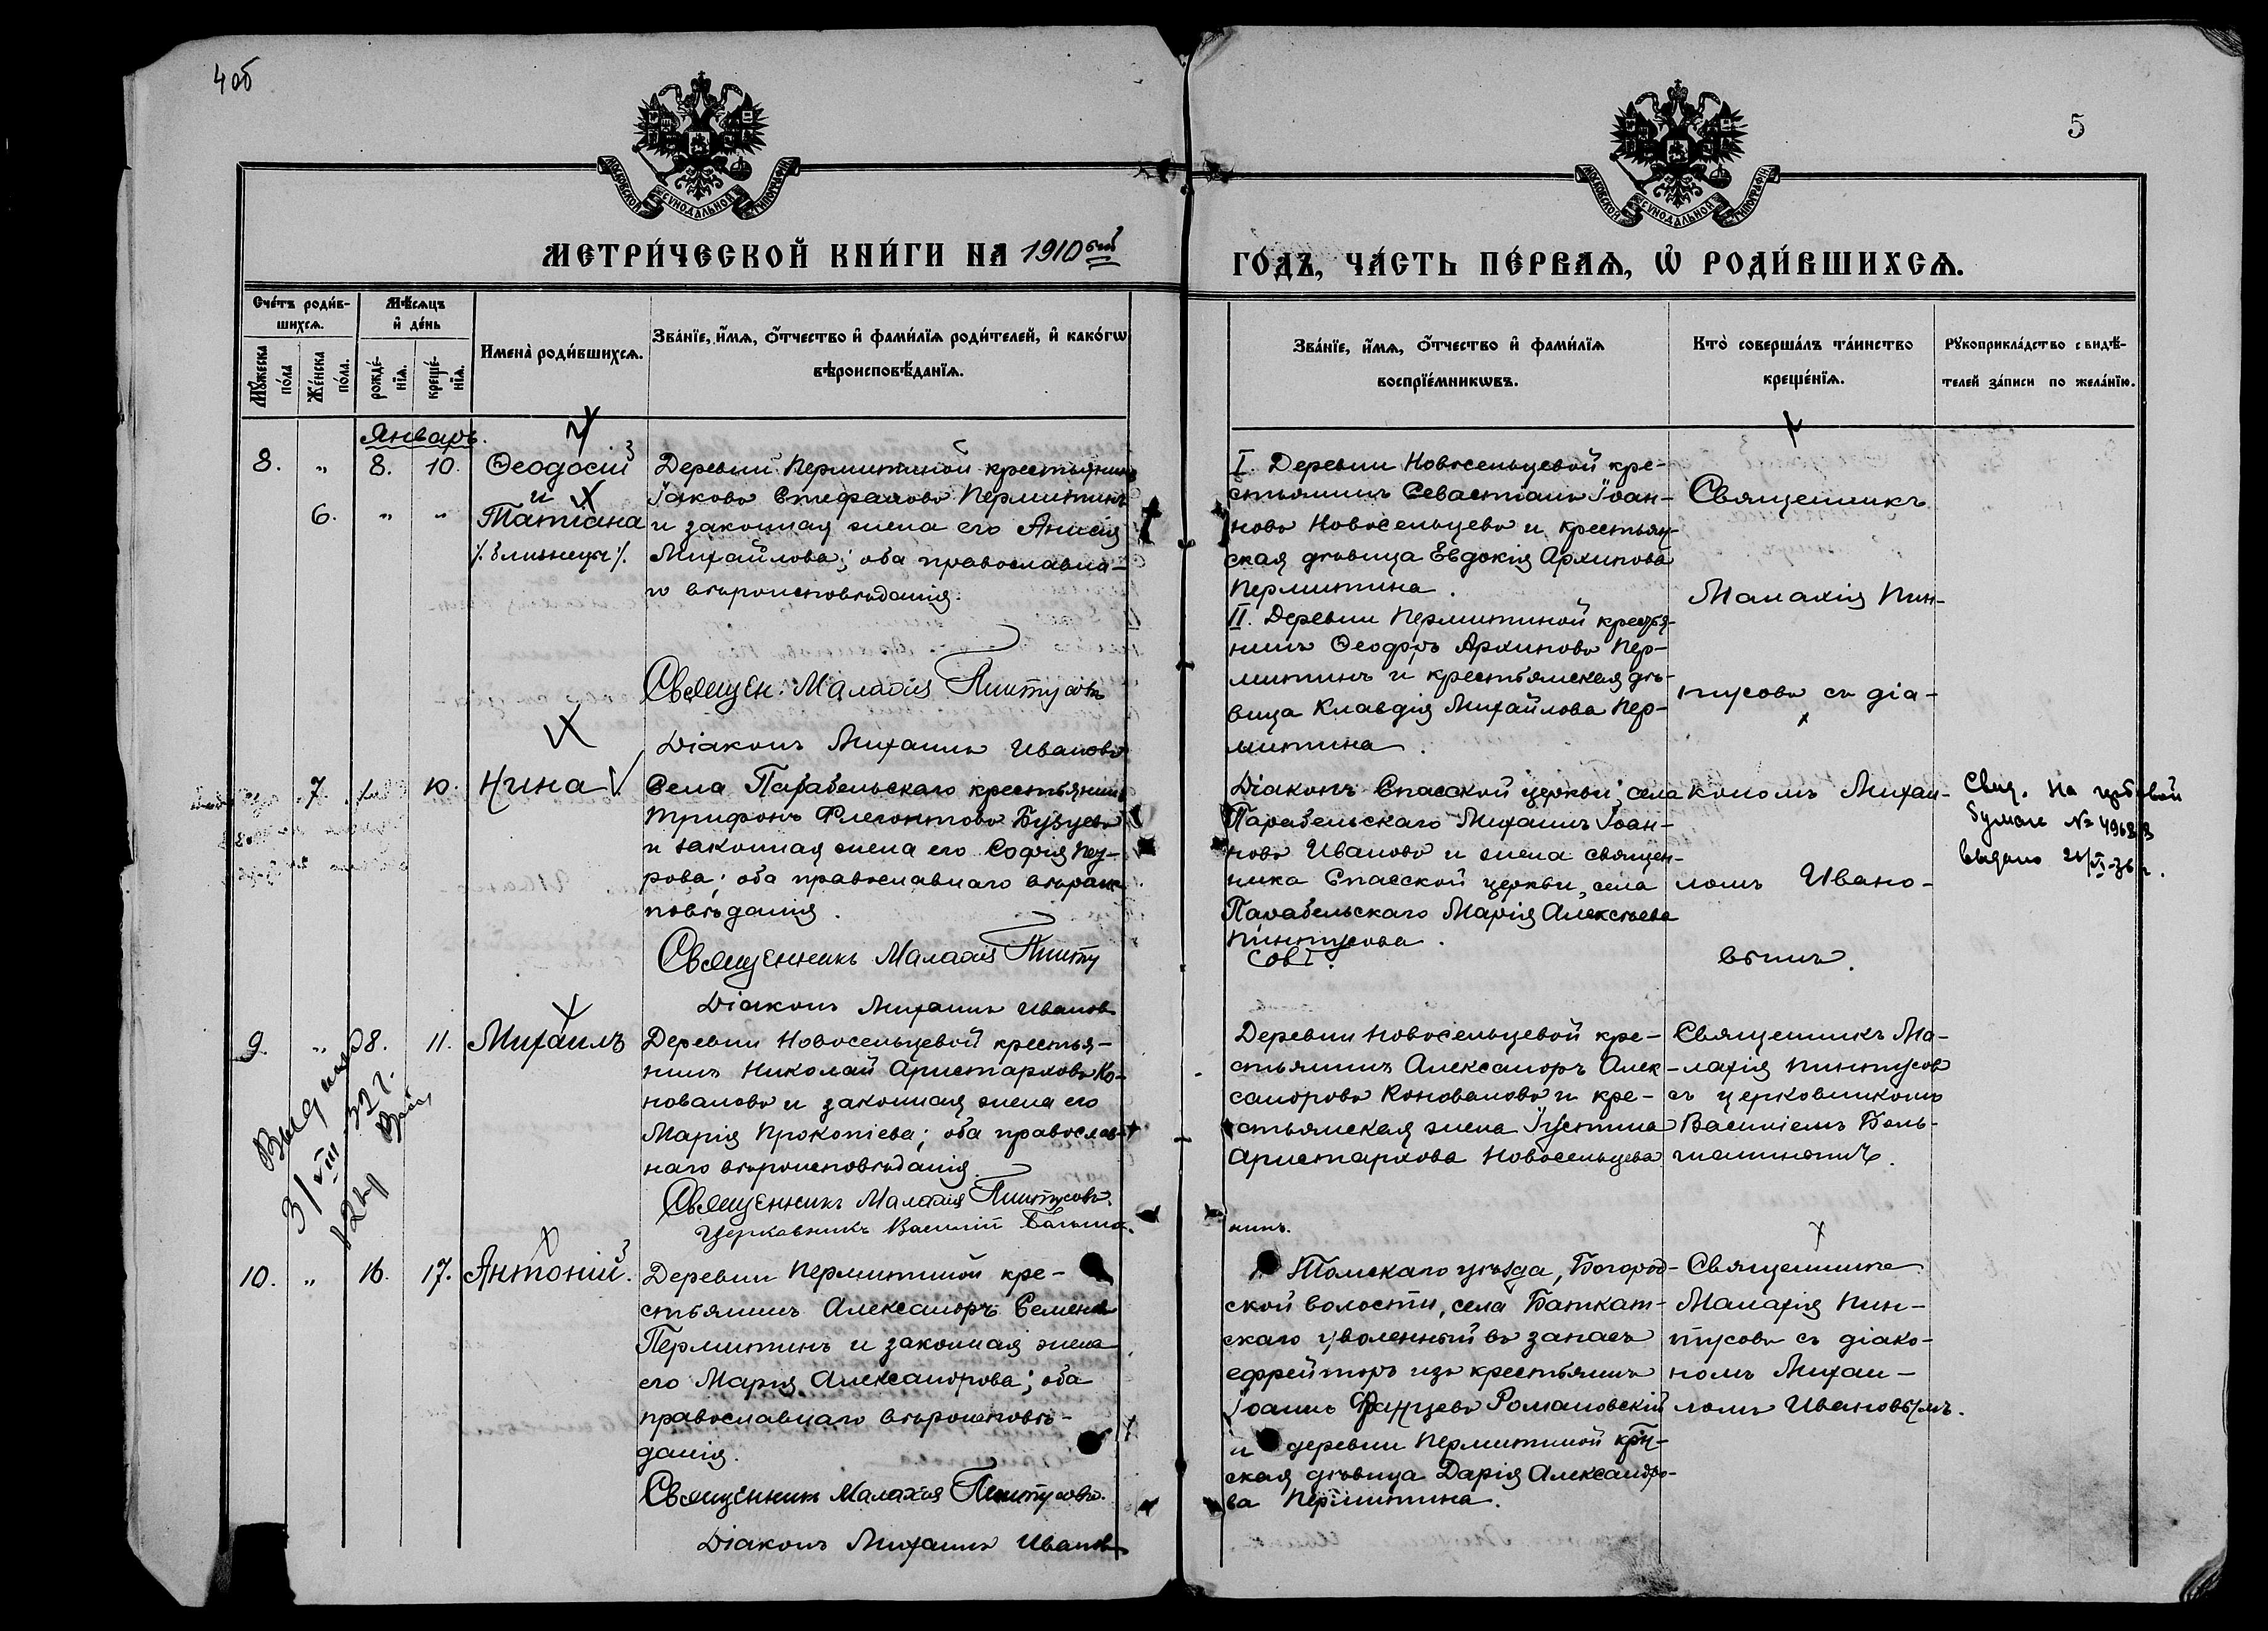 4 об
5
МОСКОВСКОЙ СѴНОДАЛЬНОЙ ТИПОГРАФІИ
МОСКОВСКОЙ СѴНОДАЛЬНОЙ ТИПОГРАФІИ
МЕТРИ́ЧЕСКОЙ КНИ́ГИ НА 1910 ый
ГО́ДЪ, ЧА́СТЬ ПЕ́РВАѦ, Ѡ РОДИ́ВШИХСѦ.
Сче́тъ роди́в-
шихсѧ.
Мꙋ́жеска
по́ла
Же́нска
по́ла.
Мѣ́сѧцъ
и҆ де́нь
рожде́-
нїѧ.
креще́-
нїѧ.
Имена̀ роди́вшихсѧ.
Зва́нїе, и҆́мѧ, ѻ҆́тчество и҆ фами́лїѧ роди́телей, и҆ како́гѡ
вѣроисповѣ́данїѧ.
Зва́нїе, и҆́мѧ, ѻ҆́тчество и҆ фами́лїѧ
воспрїе́мникѡвъ.
Кто̀ соверша́лъ та́инство
креще́нїѧ.
Рꙋкоприкла́дство свидѣ́-
телей за́писи по жела́нїю.
Январь.
8. " 8. 10. Ѳеодосій
и
6. " " Татіана
/. близнецы /.
Деревни Пермитиной крестьянинъ
Іаковъ Стефановъ Пермитинъ
и законная жена его Анисія
Михайлова; оба православна-
го вѣроисповѣданія.
Священ. Малахія Пинтусовъ
Діаконъ Михаилъ Ивановъ
I. Деревни Новосельцевой кре-
стьянинъ Севастіанъ Іоан-
новъ Новосельцевъ и крестьян-
ская дѣвица Евдокія Архипова
Пермитина.
II. Деревни Пермитиной крестья-
нинъ Ѳеодоръ Архиповъ Пер-
митинъ и крестьянская дѣ-
вица Клавдія Михайлова Пер-
митина.
Священникъ
Малахія Пин-
тусовъ съ діа-
кономъ Михаи-
ломъ Ивано-
вымъ.
7. 10. Нина
Села Парабельскаго крестьянинъ
Трифонъ Флегонтовъ Бузуевъ
и законная жена его Софія Пет-
рова; оба православнаго вѣроис-
повѣданія.
Священникъ Малахія Пинту
совъ.
Діаконъ Михаилъ Ивановъ
Діаконъ Спасской церкви, села
Парабельскаго Михаилъ Іоан-
новъ Ивановъ и жена священ-
ника Спасской церкви, села
Парабельскаго Марія Алексѣева
Пинтусова.
Свид. на гербовой
бумаге № 4968
выдано 21/VI-36 г.
9. " 8. 11. Михаилъ
Выдана
3/VIII 32 г.
Деревни Новосельцевой крестья-
нинъ Николай Аристарховъ Ко-
новаловъ и законная жена его
Марія Прокопіева; оба православ-
наго вѣроисповѣданія.
Священникъ Малахія Пинтусовъ.
Церковникъ Василій Бальша-
нинъ.
Деревни Новосельцевой кре-
стьянинъ Александръ Алек-
сандровъ Коноваловъ и кре-
стьянская жена Іустина
Аристархова Новосельцева
Священникъ Ма-
лахія Пинтусов
съ церковникомъ
Василіемъ Баль-
шанинымъ.
10. " 16. 17. Антоній.
Деревни Пермитиной кре-
стьянинъ Александръ Семеновъ
Пермитинъ и законная жена
его Марія Александрова; оба
православнаго вѣроисповѣ-
данія.
Священникъ Малахія Пинтусовъ.
Діаконъ Михаилъ Ивановъ
Томскаго уѣзда, Богород-
ской волости, села Баткат-
скаго уволенный въ запасъ
ефрейторъ изъ крестьянъ
Іоаннъ Романовскій
и деревни Пермитиной кр-
ская дѣвица Дарія Александро-
ва Пермитина.
Священникъ
Малахія Пин-
тусовъ съ діако-
номъ Михаи-
ломъ Ивановымъ.